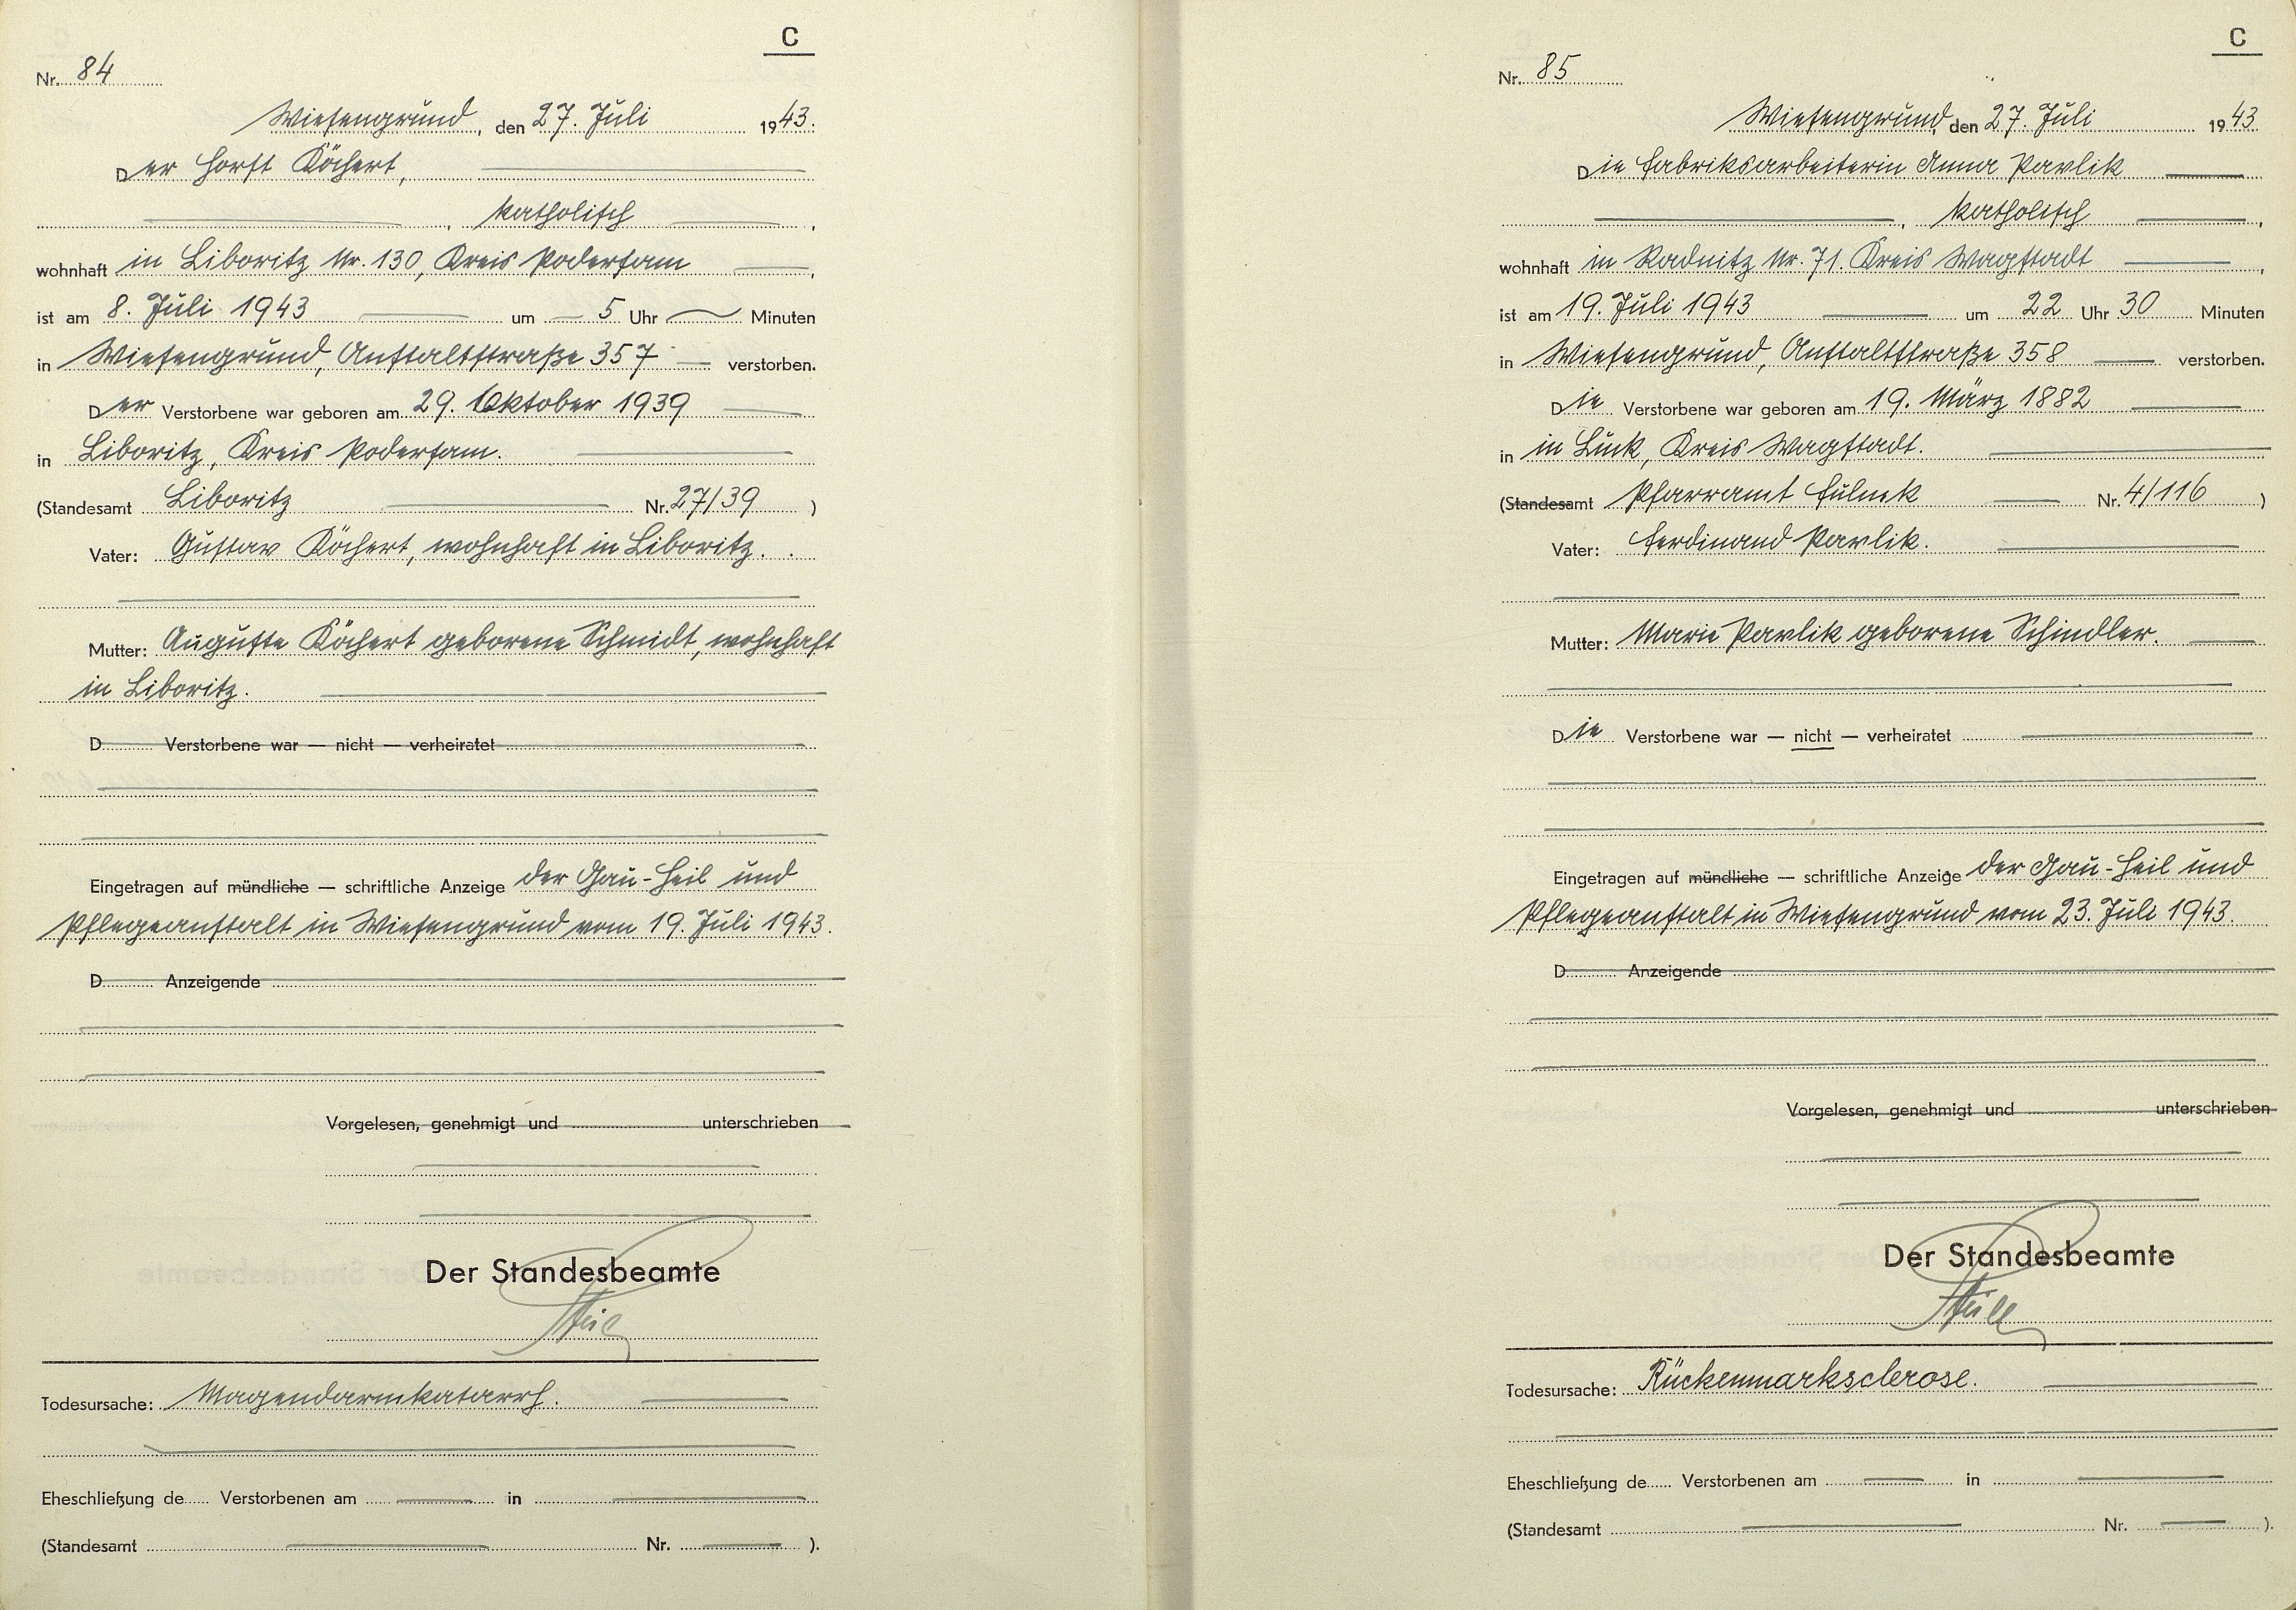 C
Nr. 84
Wiesengrund, den 27. Juli 1943.
Der Horst Köchert,
, katholisch ,
wohnhaft in Liboritz Nr. 130, Kreis Podersam ,
ist am 8. Juli 1943 um 5 Uhr Minuten
in Wiesengrund, Anstaltstraße 357 verstorben.
Der Verstorbene war geboren am 29. Oktober 1939
in Liboritz, Kreis Podersam.
(Standesamt Liboritz Nr. 27/39 )
Vater: Gustav Köchert, wohnhaft in Liboritz.
Mutter: Auguste Köchert geborene Schmidt, wohnhaft
in Liboritz.
D Verstorbene war — nicht — verheiratet
Eingetragen auf mündliche — schriftliche Anzeige der Gau-Heil und
Pflegeanstalt in Wiesengrund vom 19. Juli 1943.
D Anzeigende
Vorgelesen, genehmigt und unterschrieben
Der Standesbeamte
Todesursache: Magendarmkatarrh.
Eheschließung de Verstorbenen am in
(Standesamt Nr. ).
C
Nr. 85
Wiesengrund, den 27. Juli 1943
Die Fabriksarbeiterin Anna Pavlik
, katholisch ,
wohnhaft in Radnitz Nr. 71. Kreis Wagstadt ,
ist am 19. Juli 1943 um 22 Uhr 30 Minuten
in Wiesengrund, Anstaltstraße 358 verstorben.
Die Verstorbene war geboren am 19. März 1882
in in Luck, Kreis Wagstadt.
(Standesamt Pfarramt Fulnek Nr. 4/116 )
Vater: Ferdinand Pavlik.
Mutter: Marie Pavlik geborene Schindler.
Die Verstorbene war — nicht — verheiratet
Eingetragen auf mündliche — schriftliche Anzeige der Gau-Heil und
Pflegeanstalt in Wiesengrund vom 23. Juli 1943.
D Anzeigende
Vorgelesen, genehmigt und unterschrieben
Der Standesbeamte
Todesursache: Rückenmarksclerose.
Eheschließung de Verstorbenen am in
(Standesamt Nr. ).